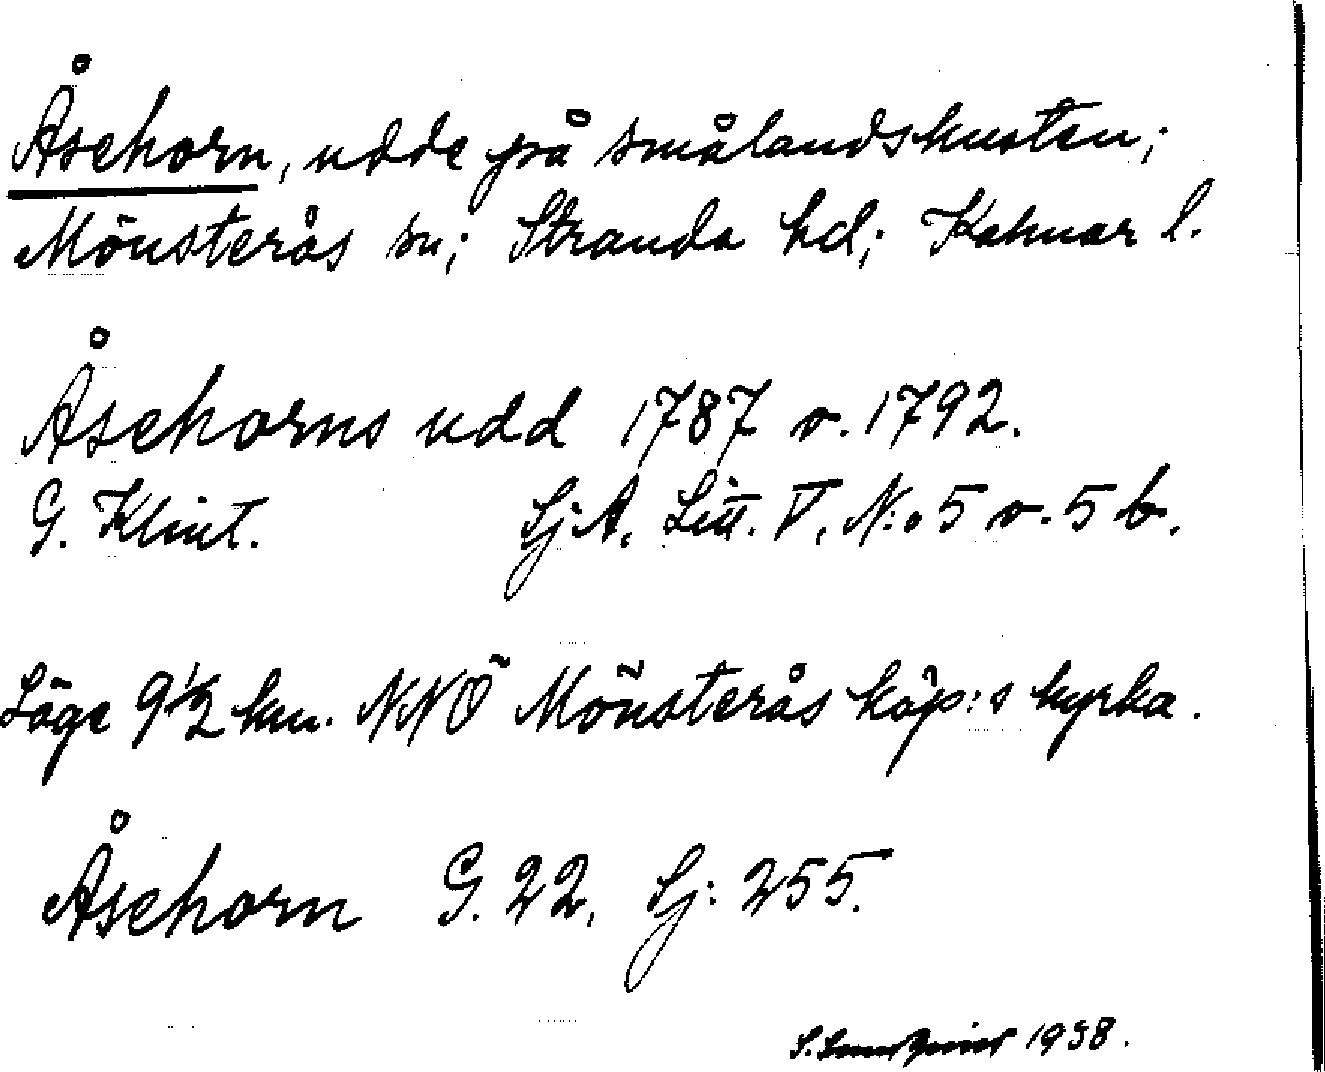 Åsehorn, udde på smålandskusten;
Mönsterås sn; Stranda hd; Kalmar l.
Åsehorns udd 1787 o. 1792.
G. Klint. Sj. A. Litt. V. N:o 5 o. 5 b.
Läge 9 1/2 km. NNÖ Mönsterås köp:s kyrka.
Åsehorn G. 22. Sj: 255.
S. 1938.